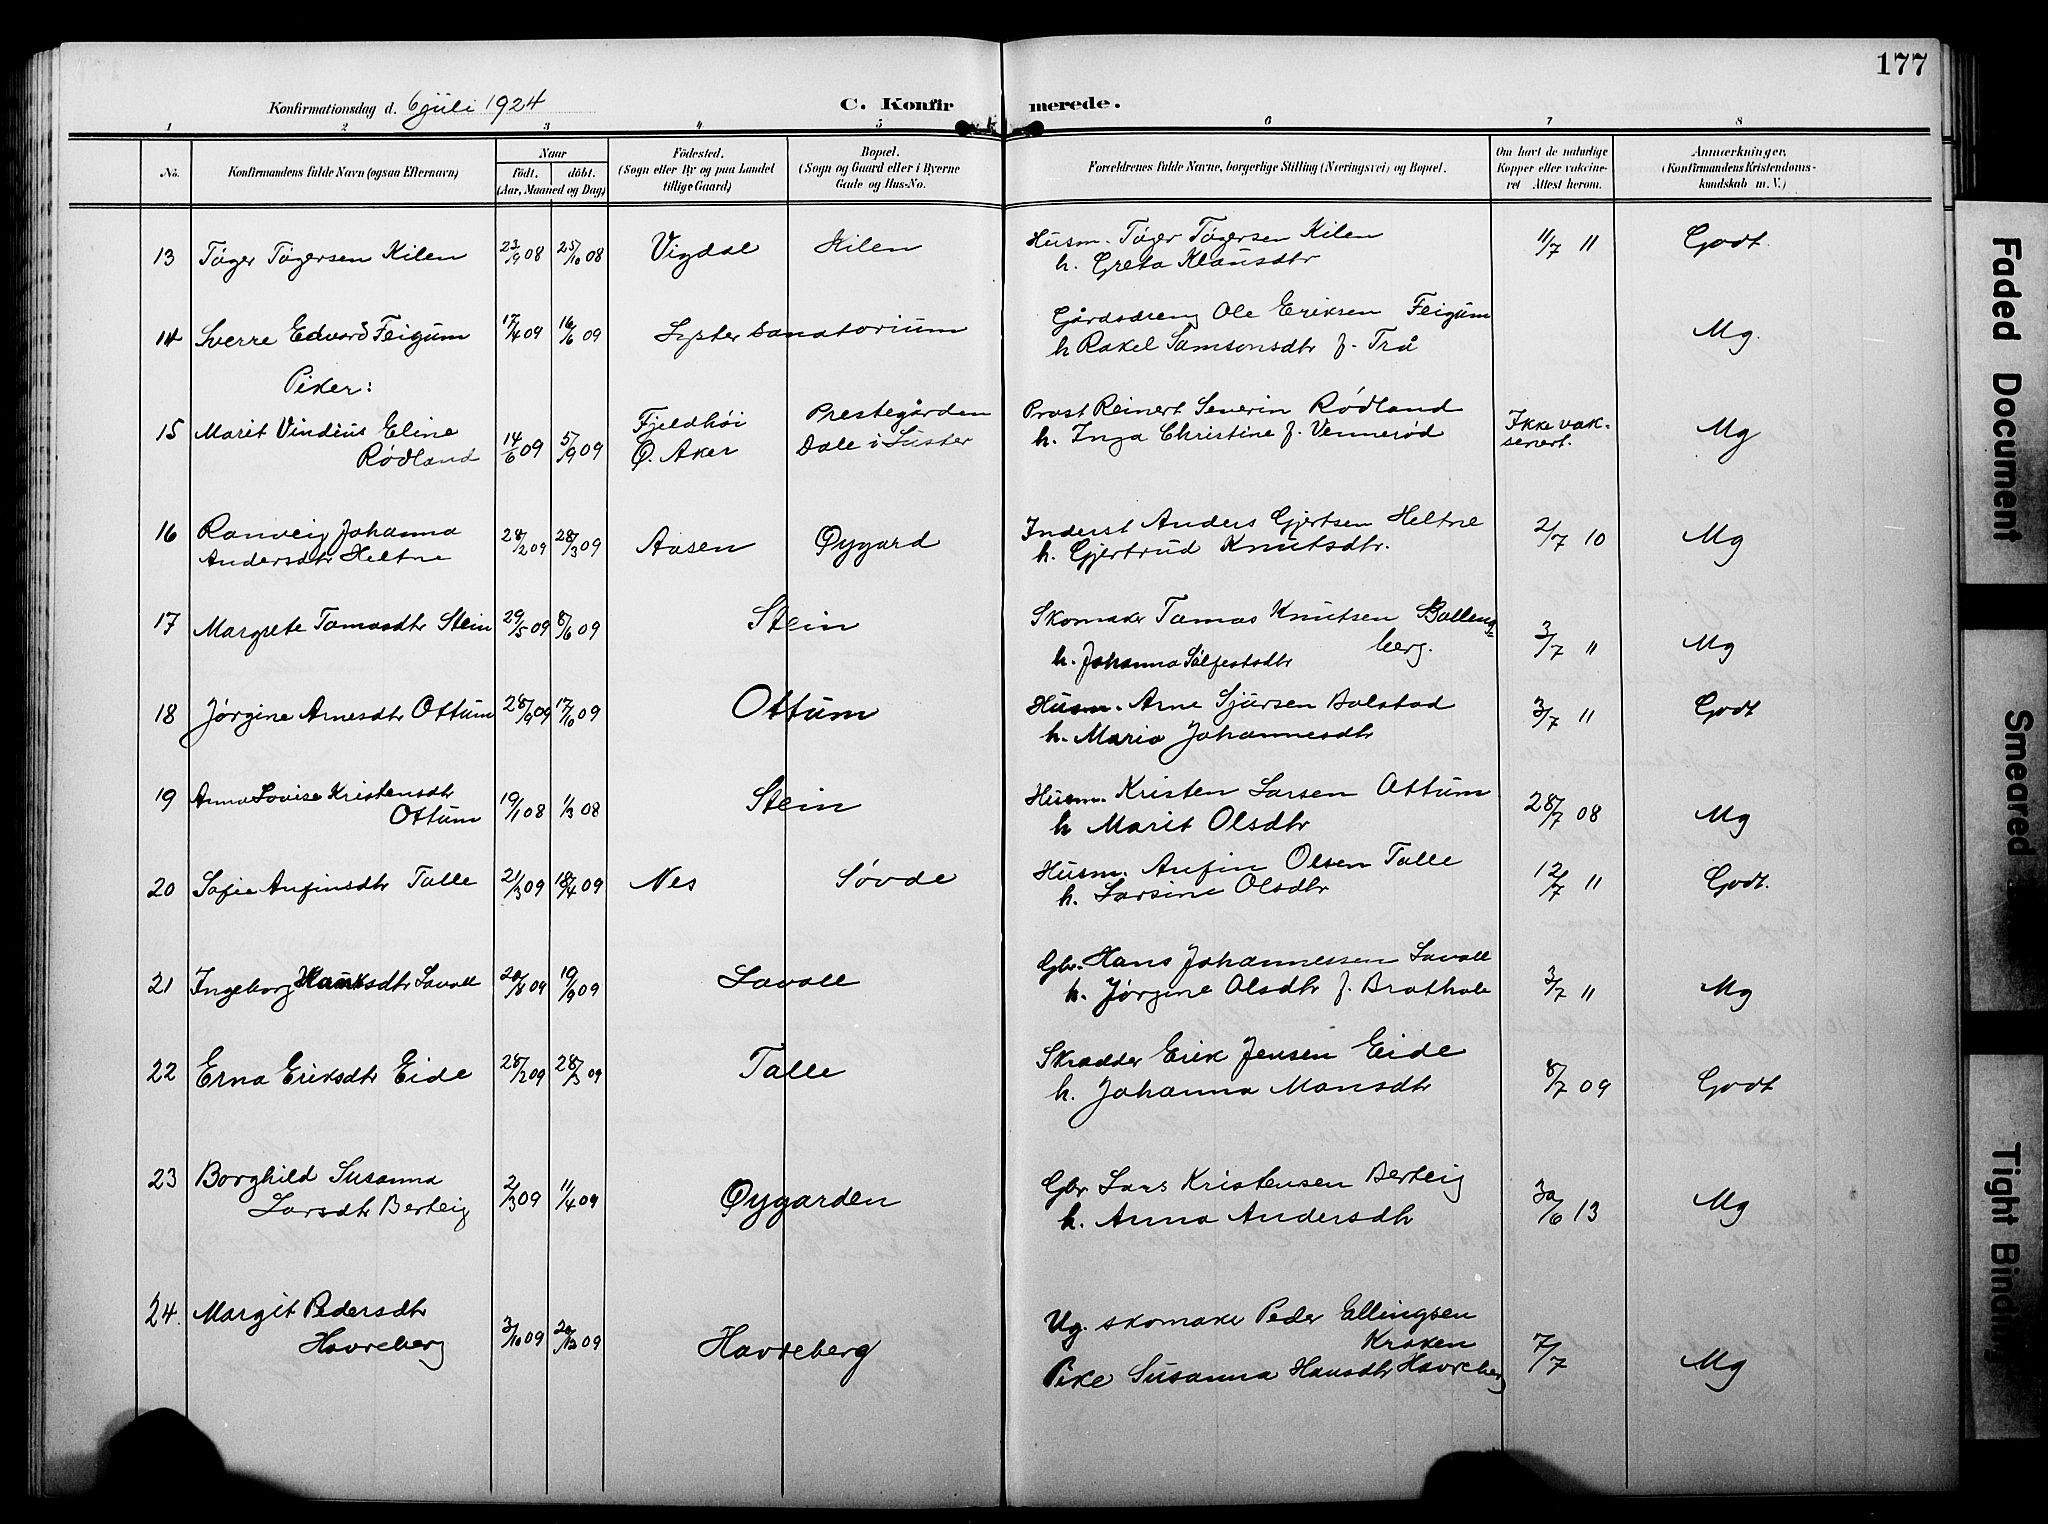 177
Konfirmationsdag d. 6 juli 1924
C. Konfirmerede.
1 2 3 4 5 6 7 8
No.
Konfirmandens fulde Navn (ogsaa Efternavn)
Naar
födt. döbt.
(Aar, Maaned og Dag)
Födested.
(Sogn eller By og paa Landet
tillige Gaard)
Bopæl.
(Sogn og Gaard eller i Byerne
Gade og Hus-No.
Forældrenes fulde Navne, borgerlige Stilling (Næringsvei) og Bopæl.
Om havt de naturlige
Kopper eller vakcine-
ret Attest herom.
Anmærkninger,
(Konfirmandens Kristendoms-
kundskab m. V.)
13 Tøger Tøgersen Kilen 23/9 08 25/10 08 Vigdal Kilen Husm. Tøger Tøgersen Kilen 11/7 11 Godt.
h. Greta Klausdtr
14 Sverre Edvard Feigum 17/4 09 16/6 09 Lyster Sanatorium Gårdsdreng Ole Eriksen Feigum Mg.
h Rakel Samsonsdtr f. Trå
Piker:
15 Marit Vindius Eline 14/6 09 5/9 09 Fjeldhöi Prestegården Prost Reinert Severin Rødland Ikke vak- Mg
Rødland Ø. Aker Dale i Luster h. Inga Christine f. Vennerød senert.
16 Ranveig Johanna 28/2 09 28/3 09 Aasen Øygard Inderst Anders Gjertsen Heltne 2/7 10 Mg
Andersdtr Heltne h. Gjertrud Knutsdtr.
17 Margrete Tomasdtr Stein 29/5 09 8/6 09 Stein Skomaker Tomas Knutsen Bolleng- 3/7 " Mg
berg.
h. Johanna Sølfestsdtr
18 Jørgine Arnesdtr Ottum 28/9 09 17/10 09 Ottum Husm. Arne Sjursen Bolstad 3/7 " Godt
h. Maria Johannesdtr
19 Anna Lovise Kristensdtr 19/1 08 1/3 08 Stein Husm. Kristen Larsen Ottum 28/7 08 Mg
Ottum h Marit Olsdtr
20 Sofie Anfinsdtr Talle 21/3 09 18/4 09 Nes Søvde Husm. Anfin Olsen Talle 12/7 " Godt.
h. Larsine Olsdtr
21 Ingeborg Hansdtr Lavoll 09 19/9 09 Lavoll Gbr. Hans Johannessen Lavoll 3/7 " Mg
h. Jørgine Olsdtr f. Brathole
22 Erna Eriksdtr Eide 28/2 09 28/3 09 Talle Skrædder Erik Jensen Eide 8/7 09 Godt
h. Johanna Monsdtr
23 Borghild Susanna 2/3 09 11/4 09 Øygarden Gbr Lars Kristensen Berteig 30/6 13 Mg
Larsdtr Berteig h. Anna Andersdtr
24. Margit Pedersdtr 3/10 09 20/12 09 Havreberg Ug. skomaker Peder Ellingsen 7/7 Mg
Havreberg Kroken
Pike Susanna Hansdtr Havreberg
Faded Document
Smeared
Tight Binding